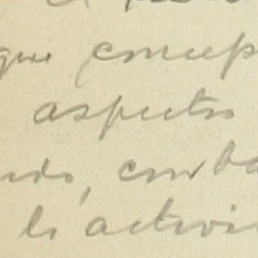 que concep
aspectos
ndo, con ba
la activi